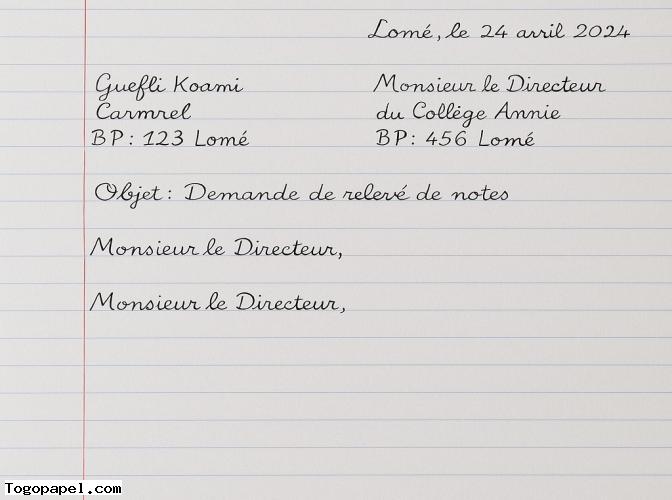 Lomé, le 24 avril 2024
Guefli Koami
Monsieur le Directeur
Carmrel
du Collège Annie
BP : 123 Lomé
BP : 456 Lomé
Objet : Demande de relevé de notes
Monsieur le Directeur,
Monsieur le Directeur,
Togopapel.com